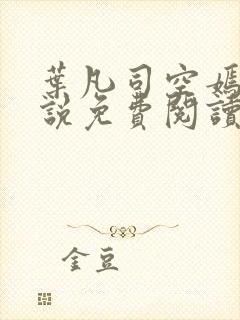 葉凡司空嫣
說免費閱讀
金豆